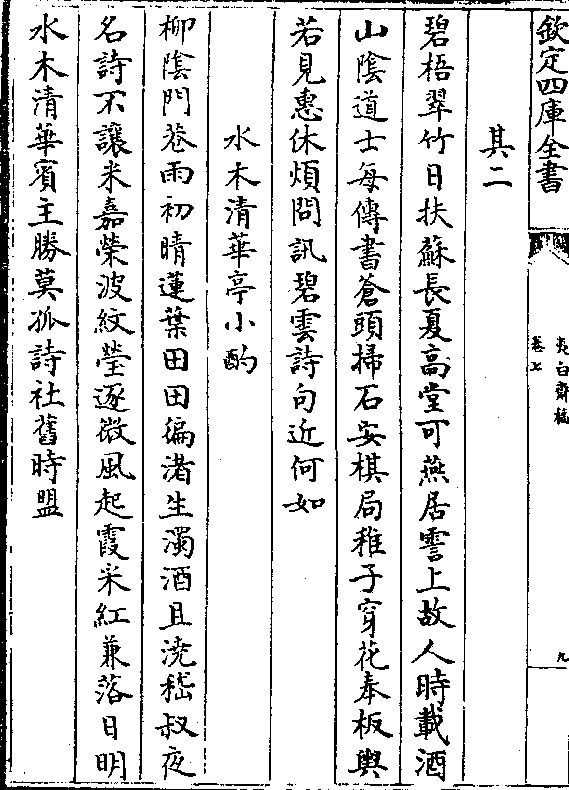 欽定四庫全書
夷白齋稿
卷七
九
其二
碧梧翠竹日扶蘇長夏高堂可燕居霅上故人時載酒
山陰道士每傳書蒼頭掃石安棋局稚子穿花奉板輿
若見惠休煩問訊碧雲詩句近何如
水木清華亭小酌
柳陰門巷雨初晴蓮葉田田徧渚生濁酒且澆嵇叔夜
名詩不讓米嘉榮波紋瑩逐微風起霞采紅兼落日明
水木清華賓主勝莫孤詩社舊時盟